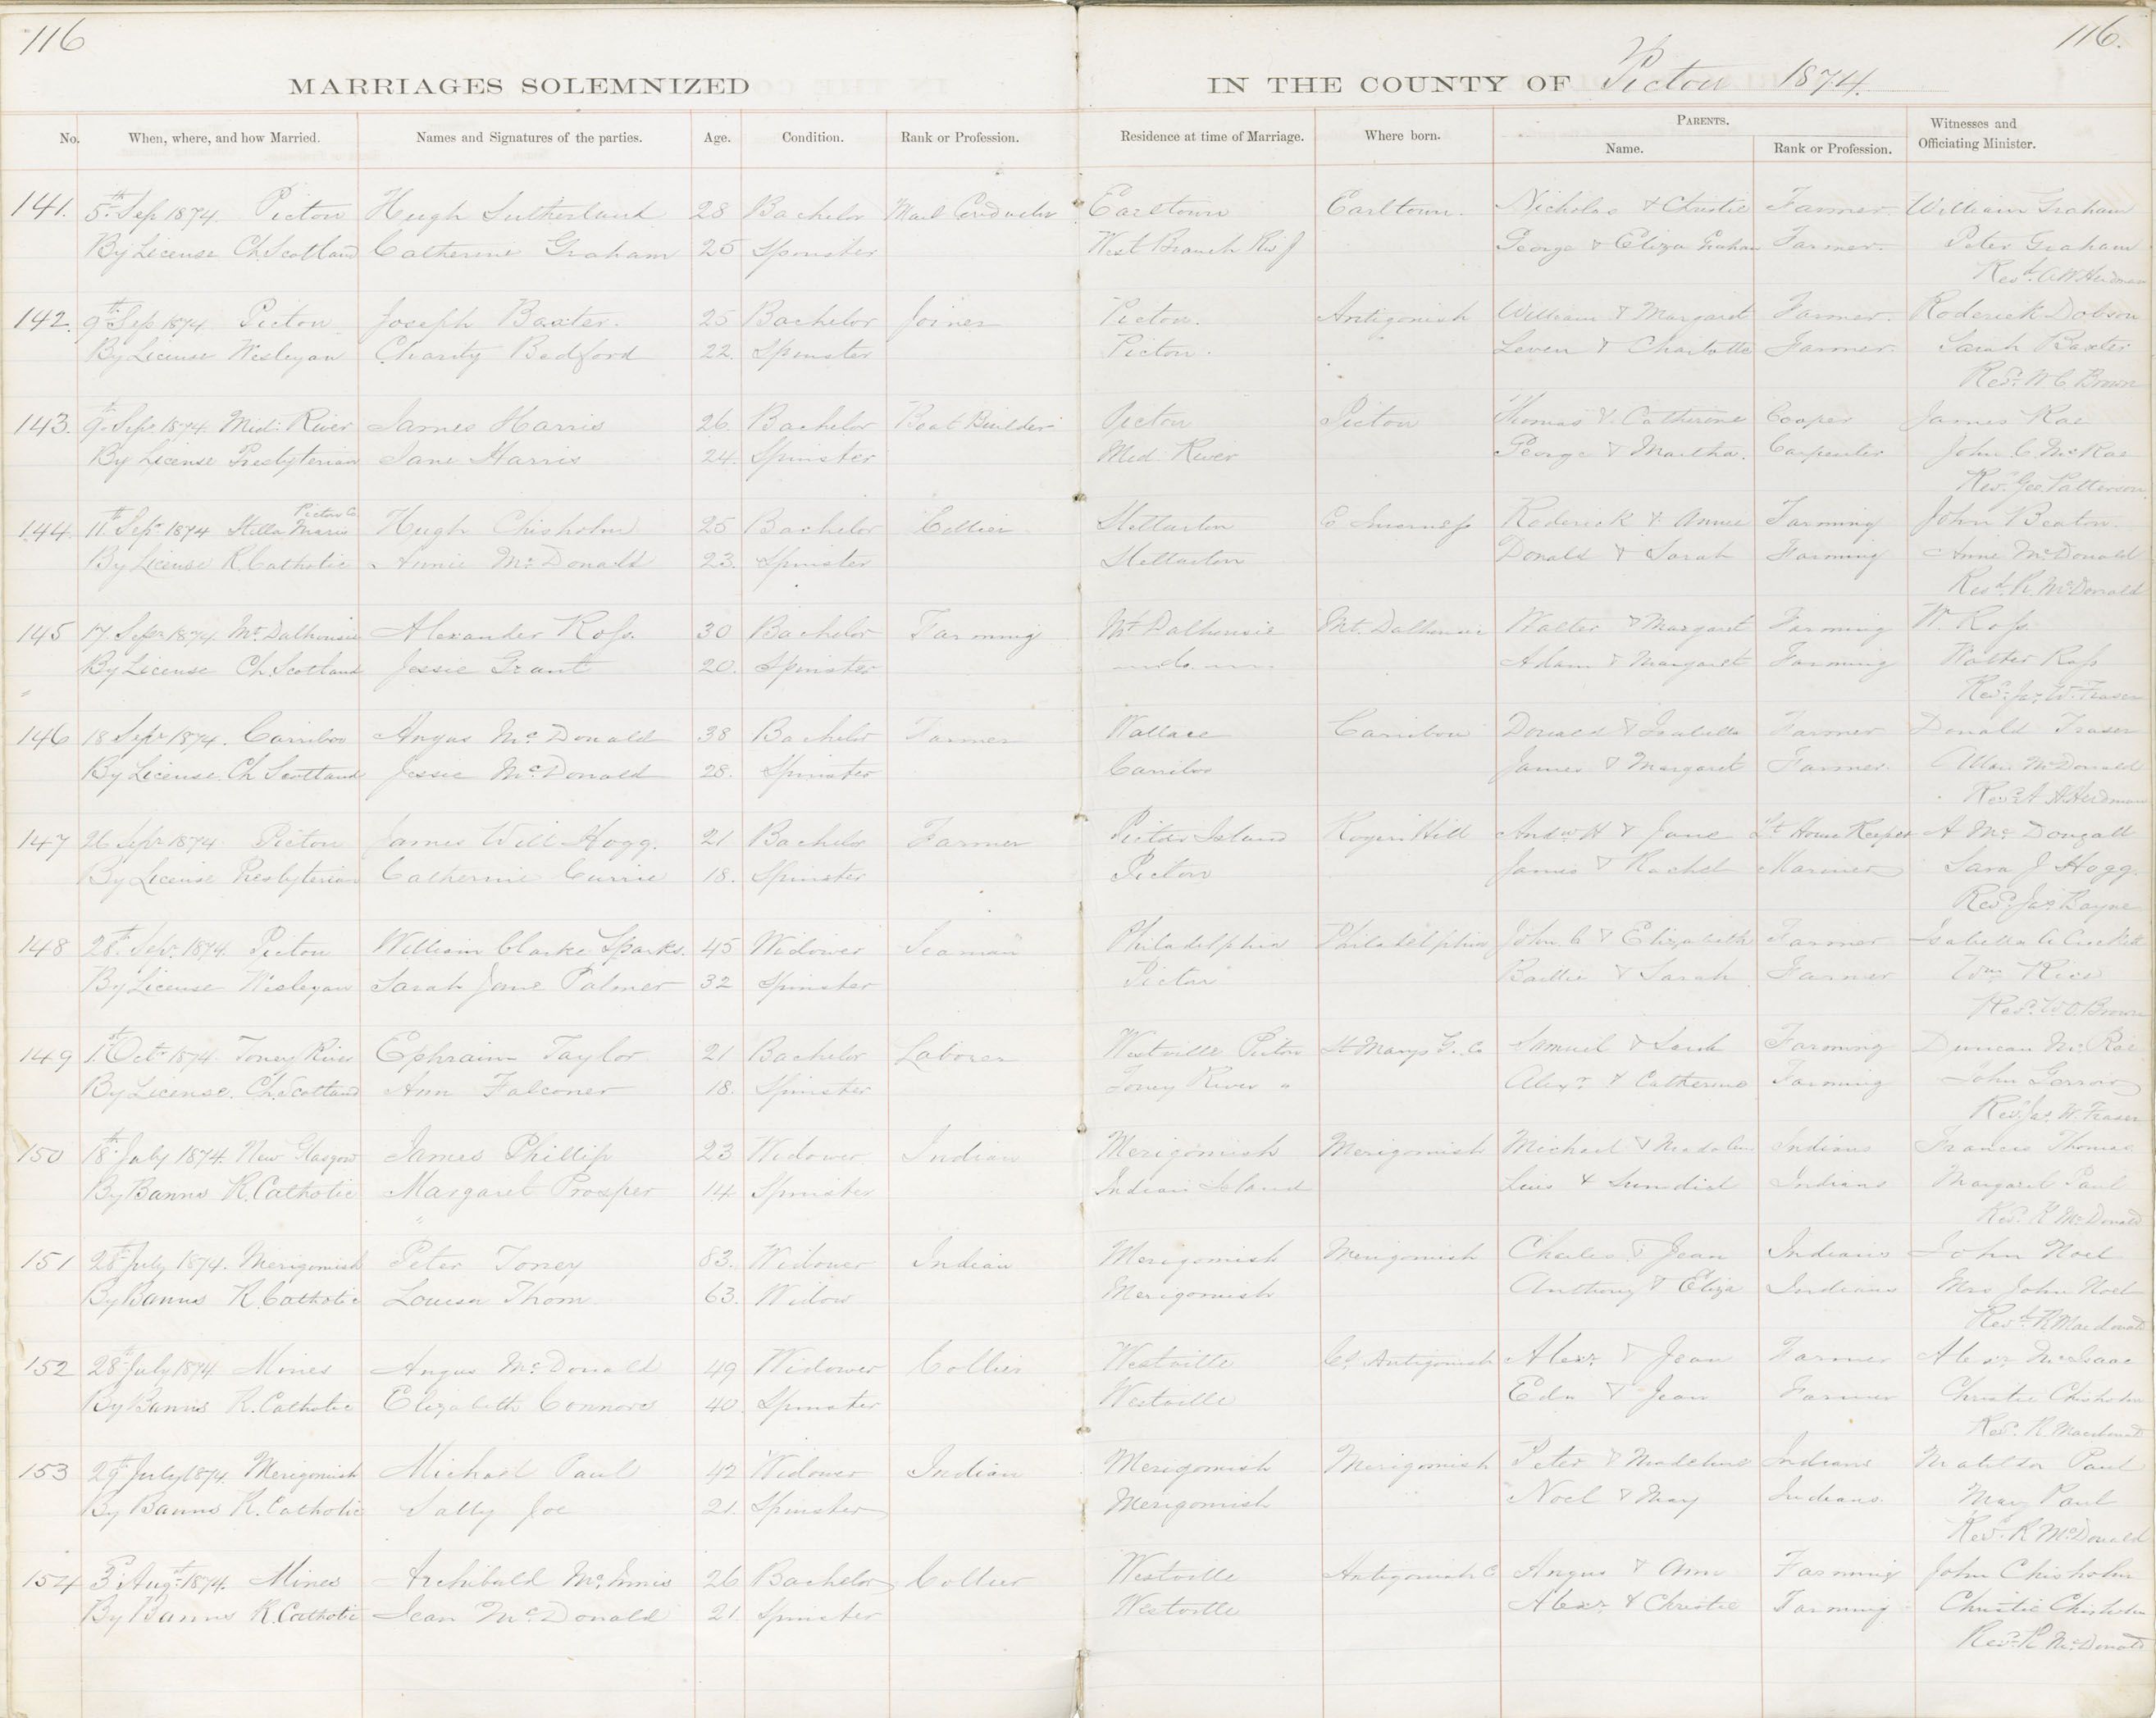 116
116.
MARRIAGES SOLEMNIZED IN THE COUNTY OF Pictou 1874.
No. When, where, and how Married. Names and Signatures of the parties. Age. Condition. Rank or Profession. Residence at time of Marriage. Where born. PARENTS. Witnesses and Officiating Minister.
Name. Rank or Profession.
141. 5th Sep 1874. Pictou Hugh Sutherland 28 Bachelor Mail Conductor Earltown Earltown. Nicholas & Christie Farmer. William Graham
By License Ch. Scotland Catherine Graham 25 Spinster West Branch Riv J George & Eliza Graham Farmer. Peter Graham
Revd. A W Herdman
142. 9th Sep 1874 Pictou Joseph Baxter. 25 Bachelor Joiner Pictou. Antigonish William & Margaret Farmer. Roderick Dobson
By License Wesleyan Charity Bedford 22. Spinster Pictou. Leven & Charlotte Farmer. Sarah Baxter
Revd. W C Brown
143. 9th Sepr 1874. Mid: River James Harris 26. Bachelor Boat Builder Pictou Pictou Thomas & Catherine Cooper James Rae
By License Presbyterian Jane Harris 24. Spinster Mid: River George & Martha. Carpenter John C. McRae
Rev. Geo. Patterson
Pictou Co
144. 11th Sepr 1874 Stella Maris Hugh Chisholm 25 Bachelor Collier Stellarton Co Inverness Roderick & Annie Farming John Beaton.
By License R. Catholic Annie McDonald 23. Spinster Stellarton Donald & Sarah Farming Annie McDonald
Revd. R. McDonald
145 17. Sepr 1874. Mt. Dalhousie Alexander Ross. 30 Bachelor Farming Mt Dalhousie Mt. Dalhousie Walter & Margaret Farming W. Ross
By License Ch. Scotland Jessie Grant 20. Spinster do. Adam & Margaret Farming Walter Ross
Revd. Jas. W. Fraser
146 18 Sepr 1874. Cariboo Angus McDonald 38 Bachelor Farmer Wallace Caribou Donald & Isabella Farmer Donald Fraser
By License. Ch Scotland Jessie McDonald 28. Spinster Cariboo James & Margaret Farmer. Allan McDonald
Revd. A Herdman
147 26 Sepr 1874 Pictou James Will Hogg. 21 Bachelor Farmer Pictou Island Rogers Hill Andw H & Jane Lt House Keeper A McDougall
By License Presbyterian Catherine Currie 18. Spinster Pictou James & Rachel Mariner Sara J Hogg.
Revd. Jas. Bayne
148 28th Sepr. 1874. Pictou William Clarke Sparks. 45 Widower Seaman Philadelphia Philadelphia John C & Elizabeth Farmer Isabella A Crockett
By License Wesleyan Sarah Jane Palmer 32 Spinster Pictou Baillie & Sarah Farmer Wm Rice
Revd. W C Brown
149 1st Octr 1874 Toney River Ephraim Taylor 21 Bachelor Laborer Westville Pictou St Marys G. Co Samuel & Sarah Farming Duncan McRae
By License. Ch. Scotland Ann Falconer 18. Spinster Toney River " Alexr. & Catherine Farming John
Revd Jas. W. Fraser
150 18th July 1874. New Glasgow James Phillip 23 Widower Indian Merigomish Merigomish Michael & Madalen Indians Francis Thomas
By Banns R. Catholic Margaret Prosper 14 Spinster Indian Island & Indians Margaret Paul
Revd. R McDonald
151 28th July 1874. Merigomish Peter Toney 83. Widower Indian Merigomish Merigomish Charles & Jean Indians John Noel
By Banns R. Catholic Louisa Thom 63. Widow Merigomish Anthony & Eliza Indians Mrs John Noel
Revd. R Macdonald
152 28th July 1874 Mines Angus McDonald 49 Widower Collier Westville Co. Antigonish Alexr & Jean Farmer Alexr McIsaac
By Banns R. Catholic Elizabeth Connors 40. Spinster Westville Edn & Jean Farmer Christie Chisholm
Revd. R Macdonald
153 29th July 1874. Merigomish Michael Paul 42 Widower Indian Merigomish Merigomish Peter & Madeline Indians Matilda Paul
By Banns R. Catholic Sally Joe 21. Spinster Merigomish Noel & Mary Indians. Mary Paul
Revd. R McDonald
154 3d Augt 1874. Mines Archibald McInnis 26 Bachelor Collier Westville Antigonish C Angus & Ann Farming John Chisholm
By Banns R. Catholic Jean McDonald 21. Spinster Westville Alexr & Christie Farming Christie Chisholm
Revd. R McDonald